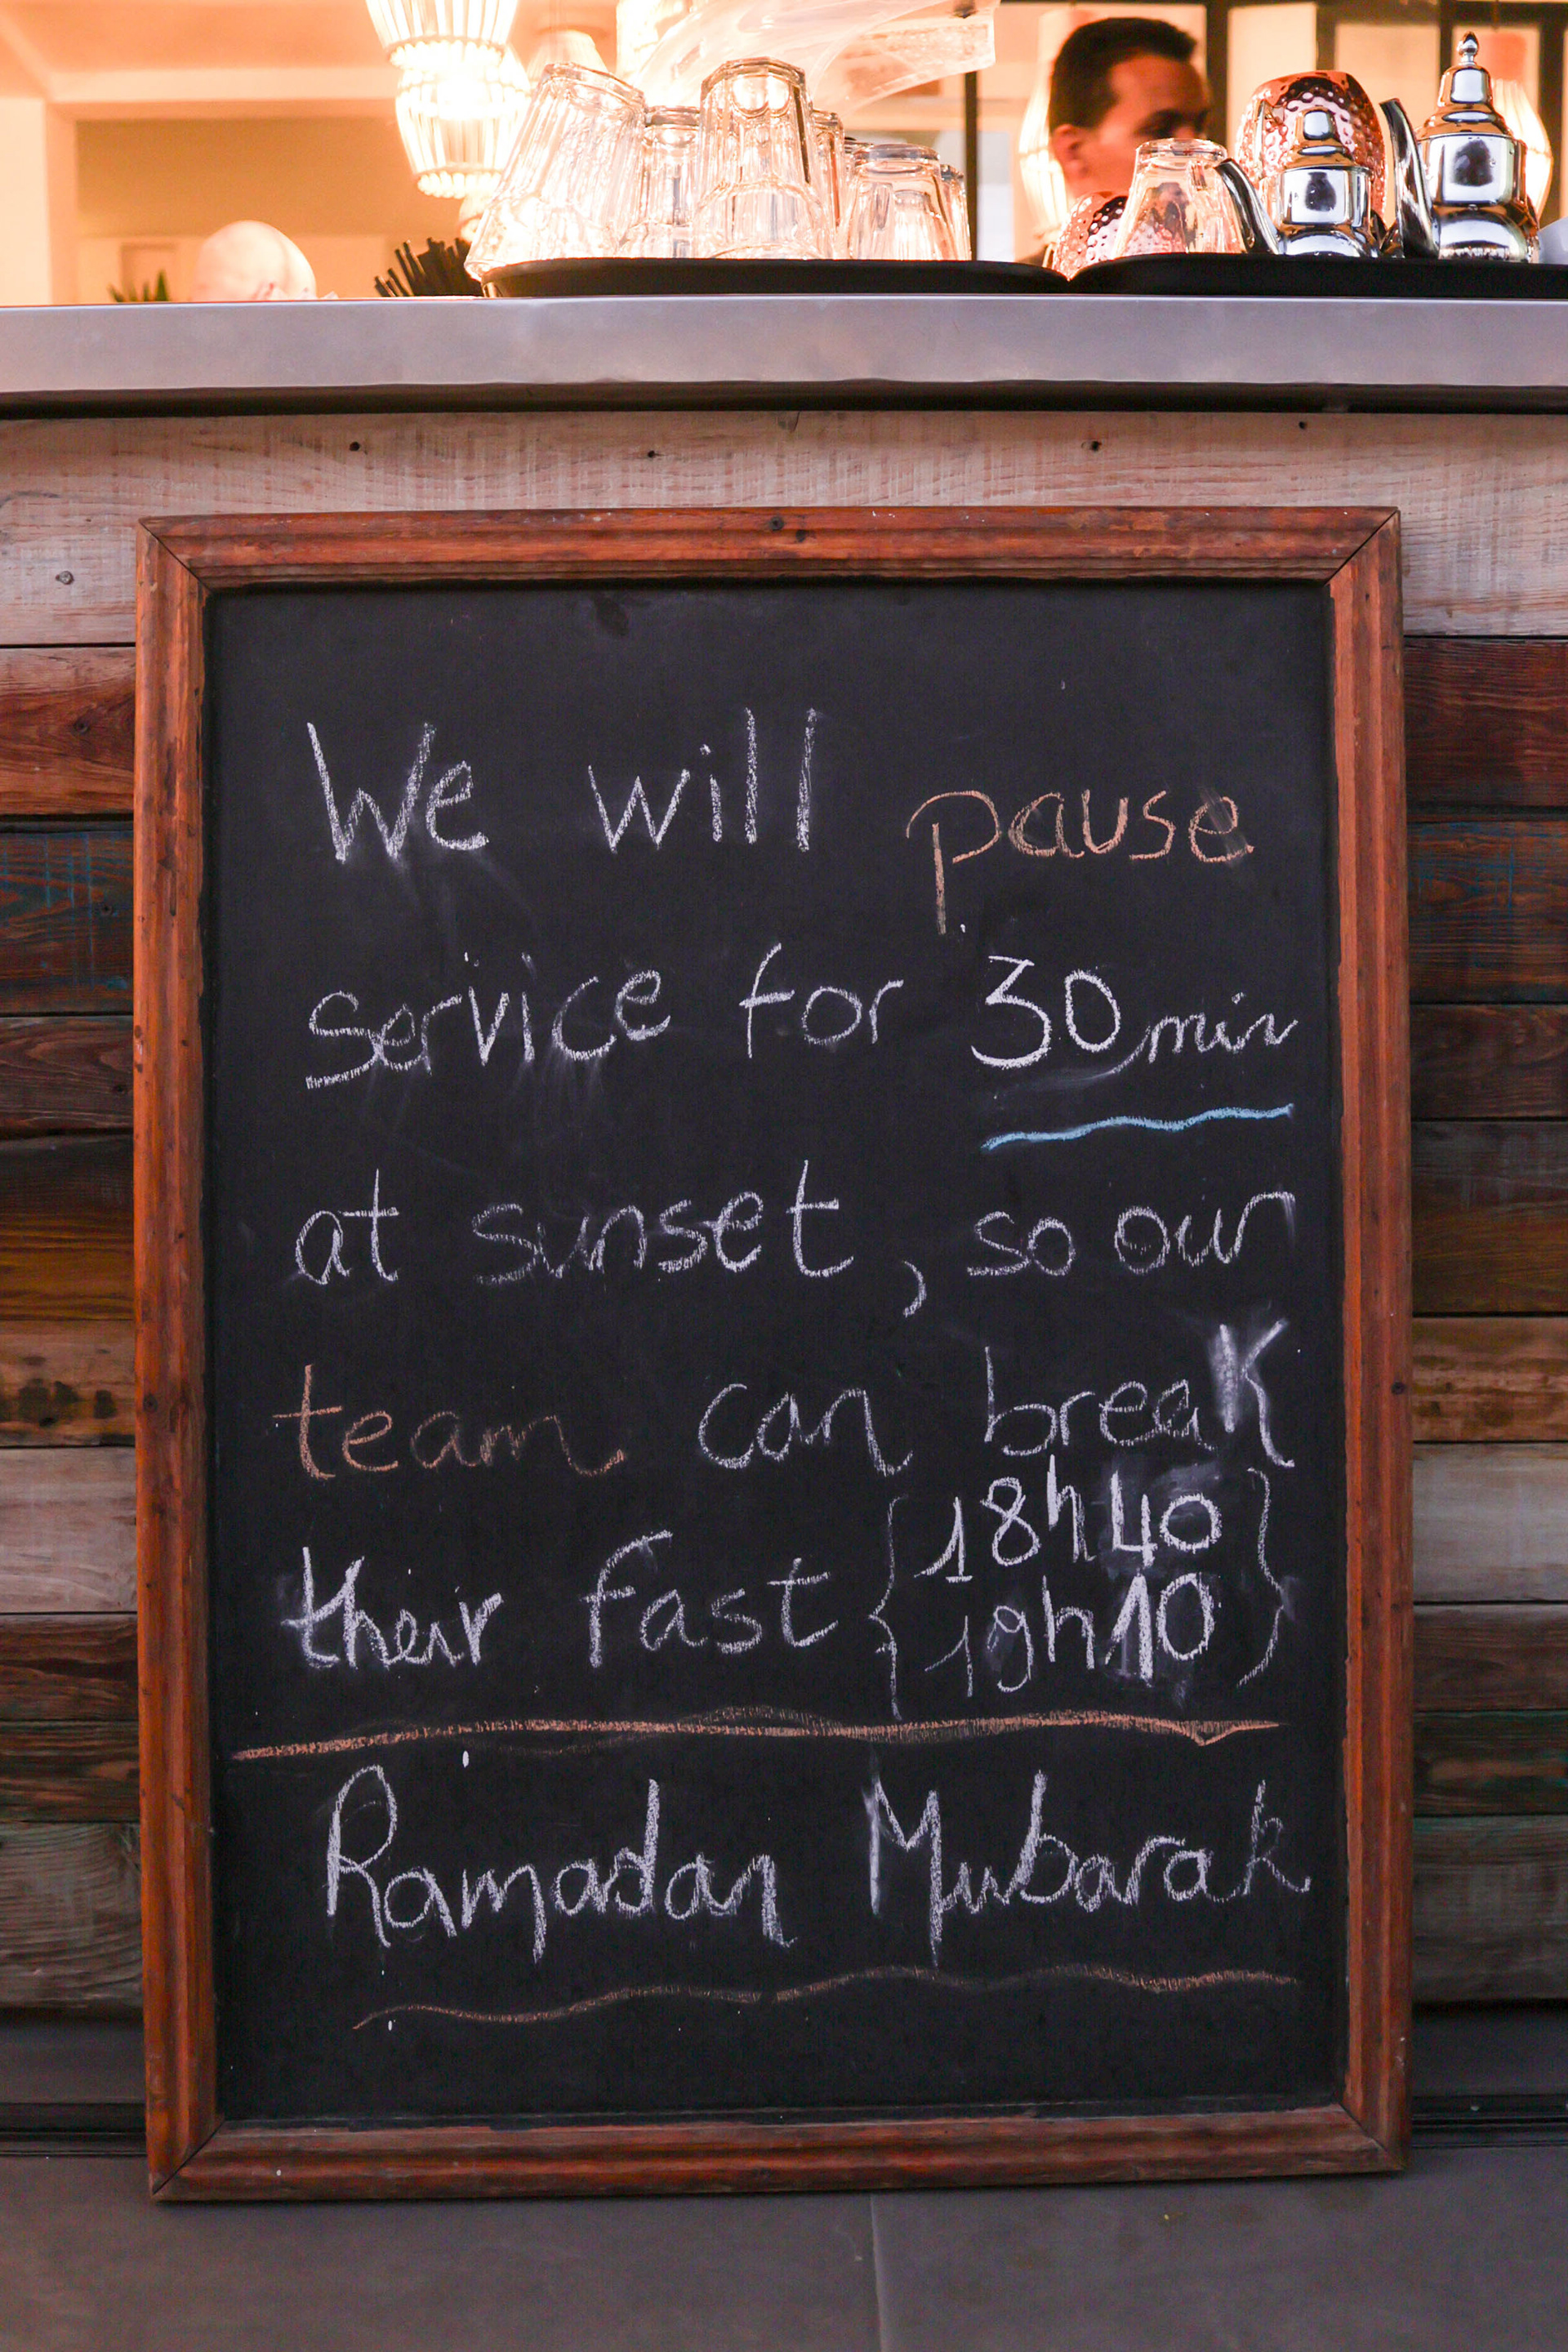 We will pause
service for 30 min
at sunset, so our
team can break
their fast { 18h40
19h10 }
Ramadan Mubarak